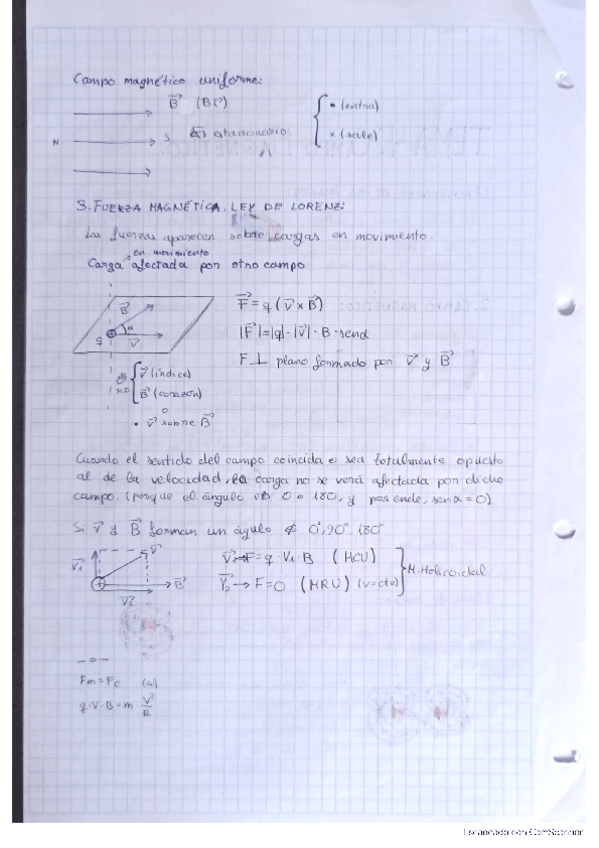 Campo magnético uniforme:
B⃗ (B⃗)
N S es estacionario
• (entra)
× (sale)
3. FUERZA MAGNÉTICA. LEY DE LORENZ:
Las fuerzas aparecen sobre cargas en movimiento.
en movimiento
Carga afectada por otro campo
B⃗ α
q V⃗
F⃗ = q (V⃗ × B⃗)
|F⃗| = |q| · |V⃗| · B · senα
F ⊥ plano formado por V⃗ y B⃗
V⃗ (índice)
B⃗ (corazón)
o
• V⃗ sobre B⃗
Cuando el sentido del campo coincida o sea totalmente opuesto
al de la velocidad, la carga no se verá afectada por dicho
campo. (porque el ángulo es 0 o 180, y por ende, senα = 0).
Si V⃗ y B⃗ forman un águlo ≠ 0°, 90°, 180°
V₁⃗ V⃗
B⃗
V₂⃗
V₁⃗ → F = q · V₁ · B (MCU)
V₂⃗ → F = 0 (MRU) (v=cte)
M. Helicoidal
— o —
Fm = Fc
q · V · B = m · V²/R
Escaneado con CamScanner